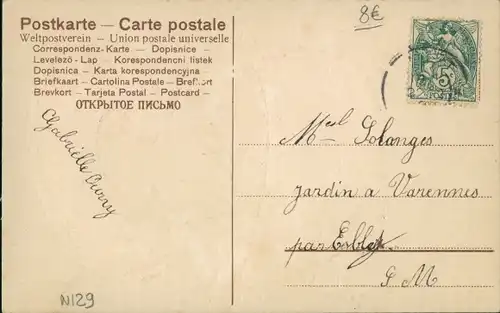 Postkarte — Carte postale
Weltpostverein — Union postale universelle
Correspondenz-Karte — Dopisnice
Levelező-Lap — Korespondencni listek
Dopisnica — Karta korespondencyjna
Briefkaart — Cartolina Postale — Brefkort
Brevkort — Tarjeta Postal — Postcard —
ОТКРЫТОЕ ПИСЬМО
8€
5
Gabrielle
Melle Solanges
Jardin a Varennes
par Esbly
S M
N129